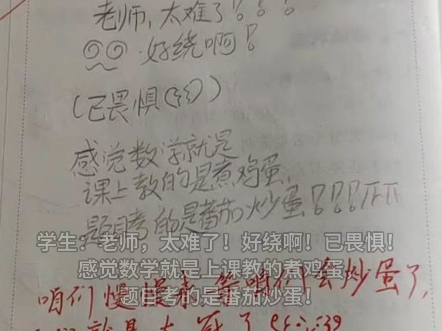 老师,太难了!!!
好绕啊!
(已畏惧
感觉数学就是
课上教的是煮鸡蛋,
题目考的是番茄炒蛋!!!
学生:老师,太难了!好绕啊!已畏惧!
感觉数学就是上课教的煮鸡蛋!
题目考的是番茄炒蛋!
咱们慢慢来,等咱们会炒蛋了,